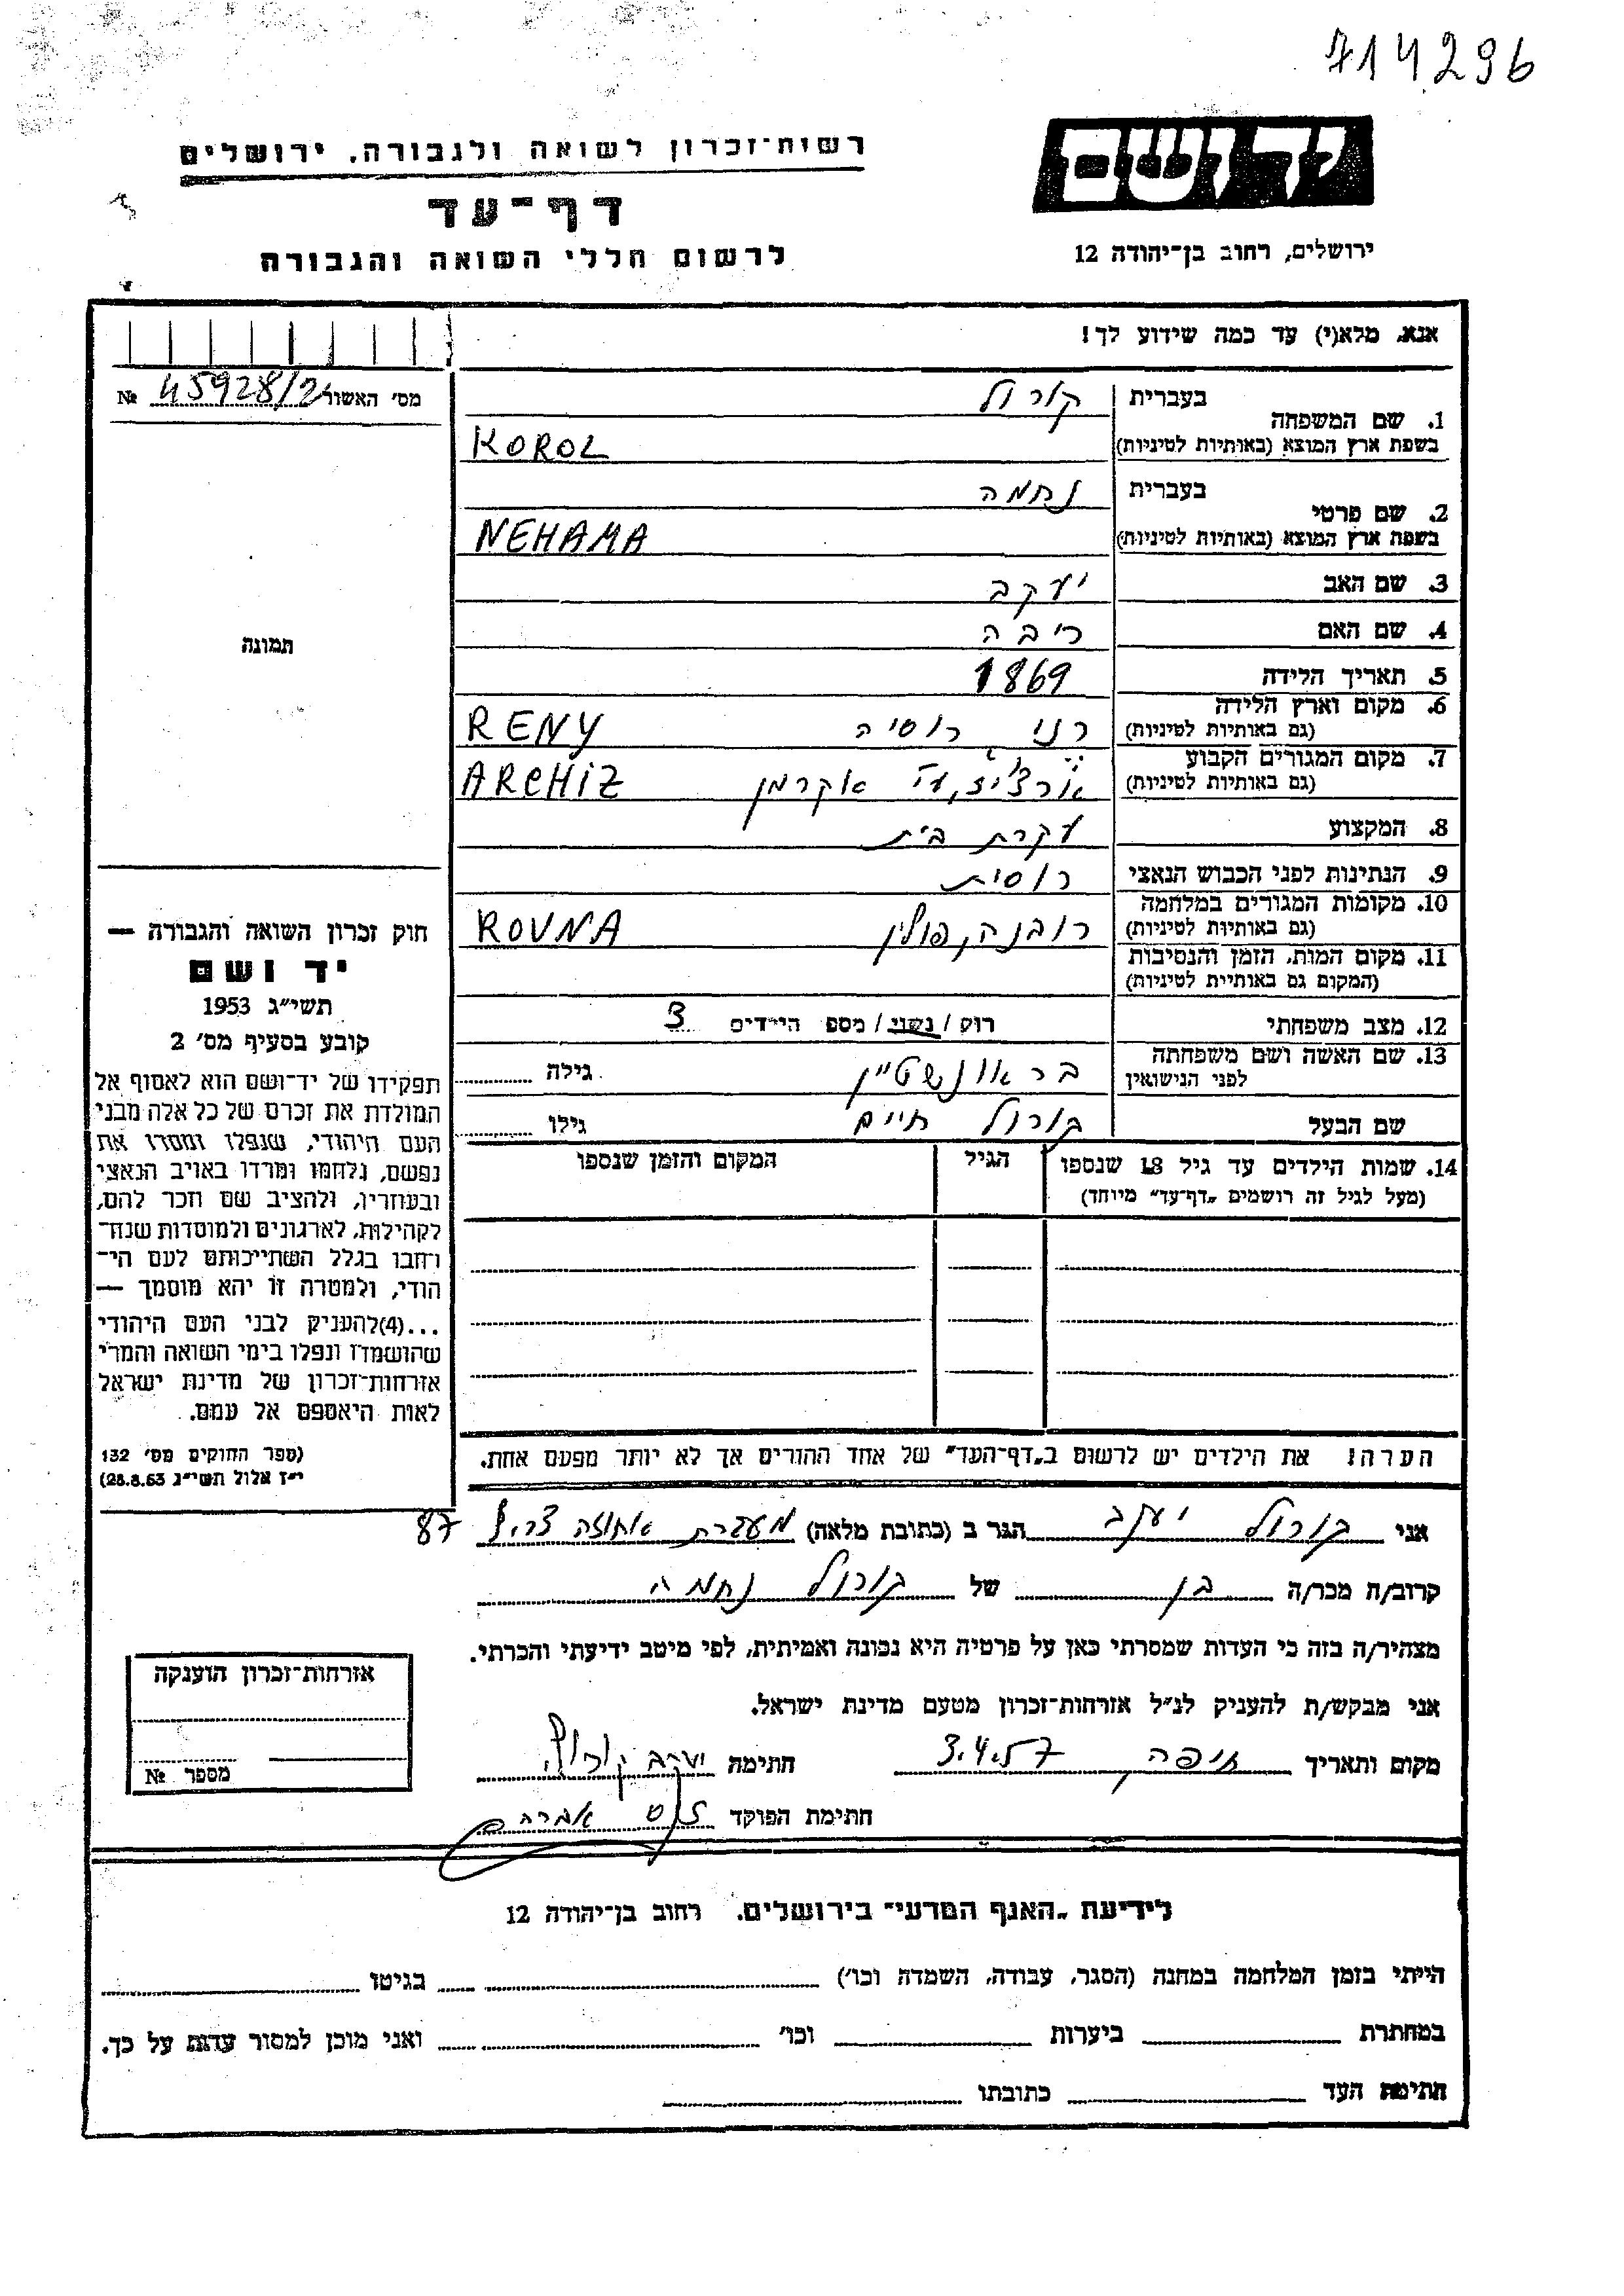 714296
יד ושם
רשות־זכרון לשואה ולגבורה, ירושלים
דף־עד
ירושלים, רחוב בן־יהודה 12
לרשום חללי השואה והגבורה
אנא, מלא(י) עד כמה שידוע לך!
מס׳ האשור 45928/21 №
1. שם המשפחה
בעברית קורול
בשפת ארץ המוצא (באותיות לטיניות) KOROL
2. שם פרטי
בעברית נחמה
בשפת ארץ המוצא (באותיות לטיניות) NEHAMA
3. שם האב יעקב
4. שם האם ריבה
5. תאריך הלידה 1869
6. מקום וארץ הלידה
(גם באותיות לטיניות) רני רוסיה RENY
7. מקום המגורים הקבוע
(גם באותיות לטיניות) ארציז, ע״י אקרמן ARCHIZ
8. המקצוע עקרת בית
9. הנתינות לפני הכבוש הנאצי רוסית
10. מקומות המגורים במלחמה
(גם באותיות לטיניות) רובנה, פולין ROVNA
11. מקום המות, הזמן והנסיבות
(המקום גם באותיית לטיניות)
12. מצב משפחתי רוק / נשוי / מספ הילדים 3
13. שם האשה ושם משפחתה
לפני הנישואין בראונשטיין גילה
שם הבעל קורול חיים גילו
14. שמות הילדים עד גיל 18 שנספו הגיל המקום והזמן שנספו
(מעל לגיל זה רושמים „דף־עד״ מיוחד)
הערה! את הילדים יש לרשום ב„דף־העד״ של אחד ההורים אך לא יותר מפעם אחת.
תמונה
חוק זכרון השואה והגבורה —
יד ושם
תשי״ג 1953
קובע בסעיף מס׳ 2
תפקידו של יד־ושם הוא לאסוף אל
המולדת את זכרם של כל אלה מבני
העם היהודי, שנפלו ומסרו את
נפשם, נלחמו ומרדו באויב הנאצי
ובעוזריו, ולהציב שם וזכר להם,
לקהילות, לארגונים ולמוסדות שנח־
רבו בגלל השתייכותם לעם הי־
הודי, ולמטרה זו יהא מוסמך —
...(4)להעניק לבני העם היהודי
שהושמדו ונפלו בימי השואה והמרי
אזרחות־זכרון של מדינת ישראל
לאות היאספם אל עמם.
(ספר החוקים מס׳ 132
י״ז אלול תשי״ג 28.8.53)
אני קורול יעקב הגר ב (כתובת מלאה) מעברת אחוזה צריף 87
קרוב/ה מכר/ה בן של קורול נחמה
מצהיר/ה בזה כי העדות שמסרתי כאן על פרטיה היא נכונה ואמיתית, לפי מיטב ידיעתי והכרתי.
אני מבקש/ת להעניק לנ״ל אזרחות־זכרון מטעם מדינת ישראל.
מקום ותאריך חיפה, 3.4.57 חתימה יעקב קורול
חתימת הפוקד אברהם
אזרחות־זכרון הוענקה
מספר №
לידיעת „האגף המדעי״ בירושלים, רחוב בן־יהודה 12
הייתי בזמן המלחמה במחנה (הסגר, עבודה, השמדה וכו׳) בגיטו
במחתרת ביערות וכו׳ ואני מוכן למסור עדות על כך.
חתימת העד כתובתו